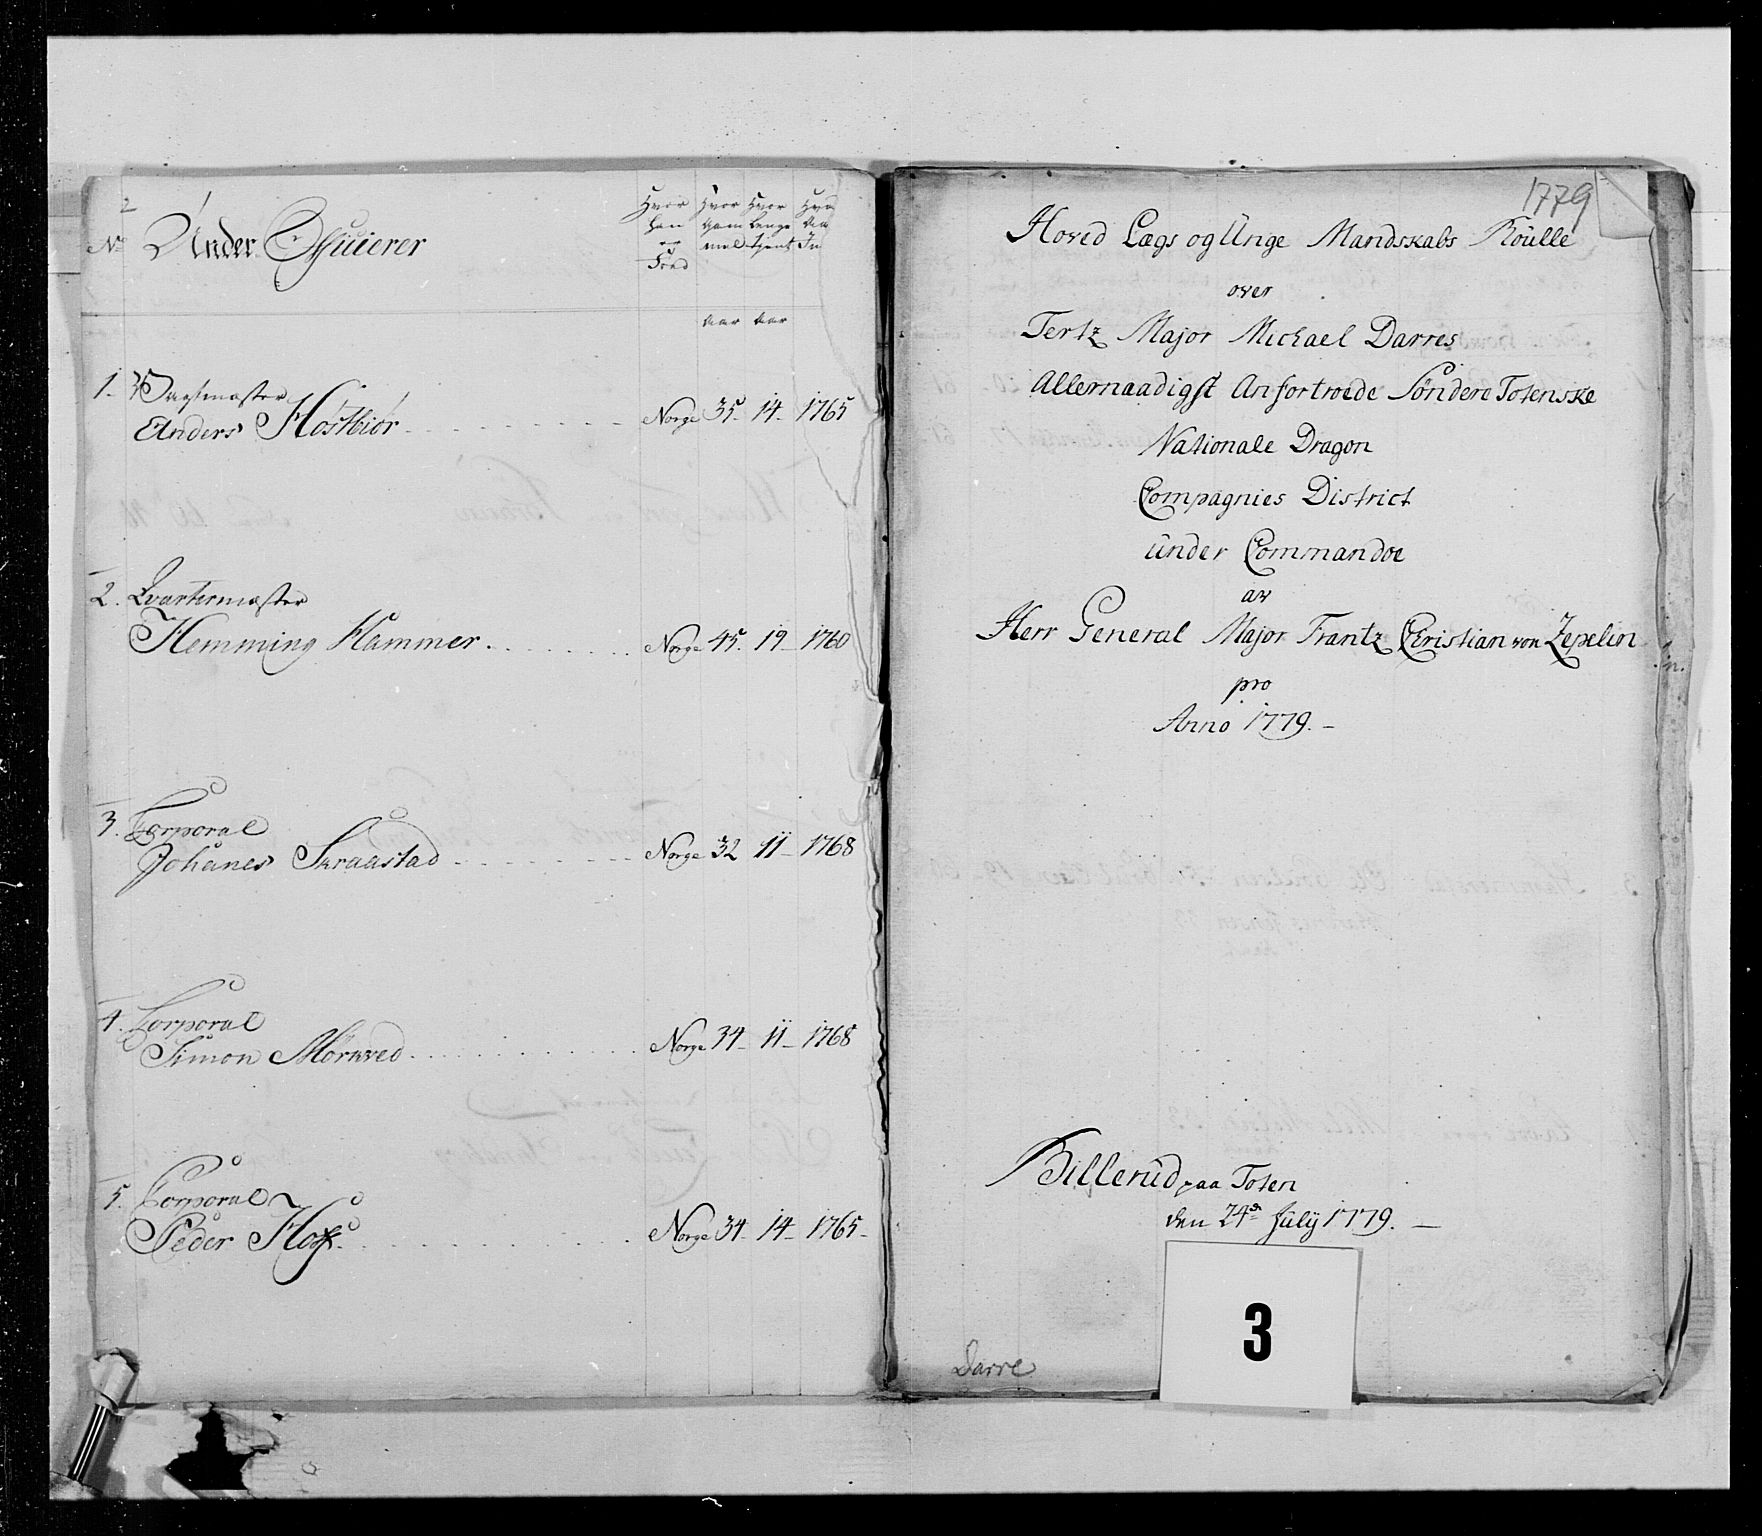 2
No
Under Officierer
Hvor
han
er
Fød
Hvor
gam
mel
Hvor
lenge
tjent
aar aar
1. Vagtmæster
Anders Hostbiør Norge 35 14 1765
2. Qvartermæster
Hemming Hammer Norge 45 19 1760
3. Corporal
Johanes Skraastad Norge 32 11 1768
4. Corporal
Simon Mørkved Norge 34 11 1768
5. Corporal
Peder Norge 34 14 1765
1779
Hoved Lægs og Unge Mandskabs Roulle
over
Tertz Major Michael Darres
Allernaadigst Anfortroede Søndere Totenske
Nationale Dragon
Compagnies District
under Commandoe
av
Herr General Major Frantz Christian von Zepelin
pro
Anno 1779.
Billerud paa Toten
den 24de Julÿ 1779.
3
Darre